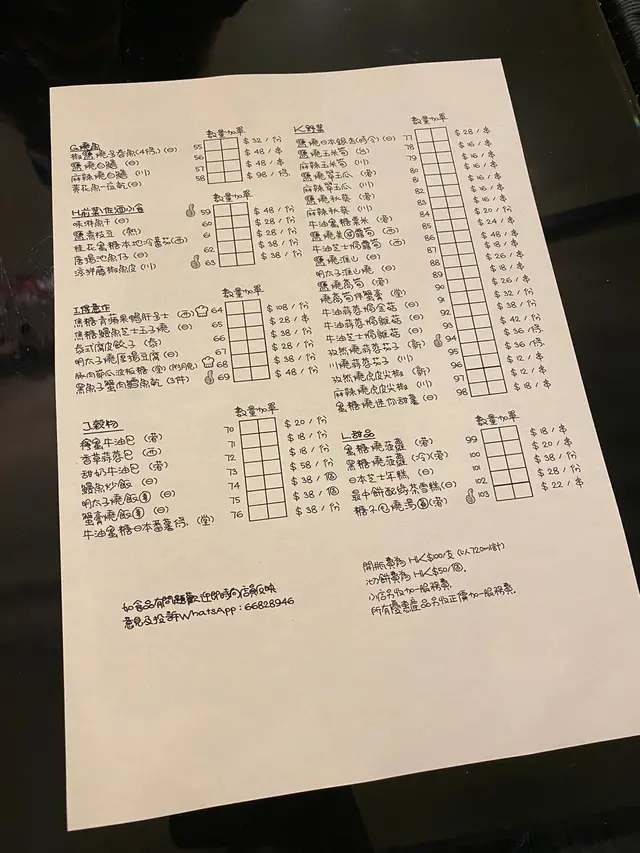 G.燒魚 數量加單
椒鹽燒多春魚(4條)(日) 55 $32/份
鹽燒白鱔 (日) 56 $48/串
麻辣燒白鱔 (川) 57 $48/串
黃花魚一夜乾(日) 58 $98/條
H.前菜/佐酒小食 數量加單
味淋魚干(日) 59 $48/份
鹽煮枝豆 60 $28/份
桂花蜜糖本地冷番茄(西) 61 $28/份
唐揚池魚仔(日) 62 $38/份
涼拌麻椒魚皮(川) 63 $38/份
數量加單
焦糖青蘋果鴨肝多士 (西) 64 $108/份
焦糖鰻魚芝士玉子燒 (日) 65 $28/份
泰式腐皮餃子 (泰) 66 $38/份
明太子燒厚揚豆腐(日) 67 $28/份
豚肉苦瓜波板糖(堂) 68 $38/份
黑魚子蟹肉鱈魚乾 (3件) 69 $48/份
J.穀物 數量加單
70 $20/份
蜂蜜牛油包 (港) 71 $18/份
香草蒜蓉包 (西) 72 $18/份
甜奶牛油包 (港) 73 $58/份
鰻魚炒飯 (日) 74 $38/個
明太子燒飯團 (日) 75 $38/個
蟹膏燒飯團 (日) 76 $38/份
牛油蜜糖日本番薯條 (堂)
K.野菜 數量加單
鹽燒日本銀杏(時令)(日) 77 $28/串
鹽燒玉米筍 78 $16/串
麻辣玉米筍 (川) 79 $16/串
鹽燒翠玉瓜 (港) 80 $16/串
麻辣翠玉瓜 (川) 81 $16/串
鹽燒秋葵 (港) 82 $16/串
麻辣秋葵 (川) 83 $16/串
牛油蜜糖粟米 (港) 84 $20/份
鹽燒美國露筍 (西) 85 $24/串
牛油芝士焗露筍 (西) 86 $48/串
鹽燒淮山 (日) 87 $18/串
明太子淮山燒 (日) 88 $26/串
鹽燒高筍 (港) 89 $18/串
燒高筍伴蟹膏 (堂) 90 $26/串
牛油蒜蓉焗金菇 (日) 91 $32/份
牛油蒜蓉焗雜菇 (日) 92 $38/份
牛油芝士焗雜菇 (日) 93 $42/份
孜然燒蒜蓉茄子 (新) 94 $36/條
川燒蒜蓉茄子 (川) 95 $36/條
孜然燒虎皮尖椒 (新) 96 $12/串
麻辣燒虎皮尖椒 (川) 97 $12/串
蜜糖燒迷你甜薯 (日) 98 $18/串
L.甜品 數量加單
蜜糖燒菠蘿 (港) 99 $18/串
黑糖燒菠蘿 (港) 100 $20/串
日本芝士年糕 (日) 101 $38/份
最中餅配綠茶雪糕(日) 102 $28/份
糖不甩燒湯圓(港) 103 $22/串
如食品有問題歡迎即時向店員反映
意見及投訴WhatsApp:66828946
開瓶費為 HK$100/支(以720ml計)
切餅費為 HK$50/個.
小店另收加一服務費.
所有優惠產品另收正價加一服務費.